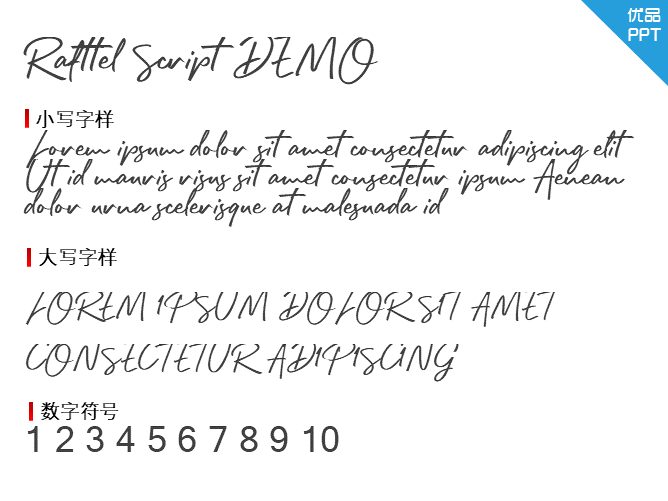 优品
PPT
Rafttel Script DEMO
小写字样
Lorem ipsum dolor sit amet consectetur adipiscing elit
Ut id mauris risus sit amet consectetur ipsum Aenean
dolor urna scelerisque at malesuada id
大写字样
LOREM IPSUM DOLOR SIT AMET
CONSECTETUR ADIPISCING
数字符号
1 2 3 4 5 6 7 8 9 10